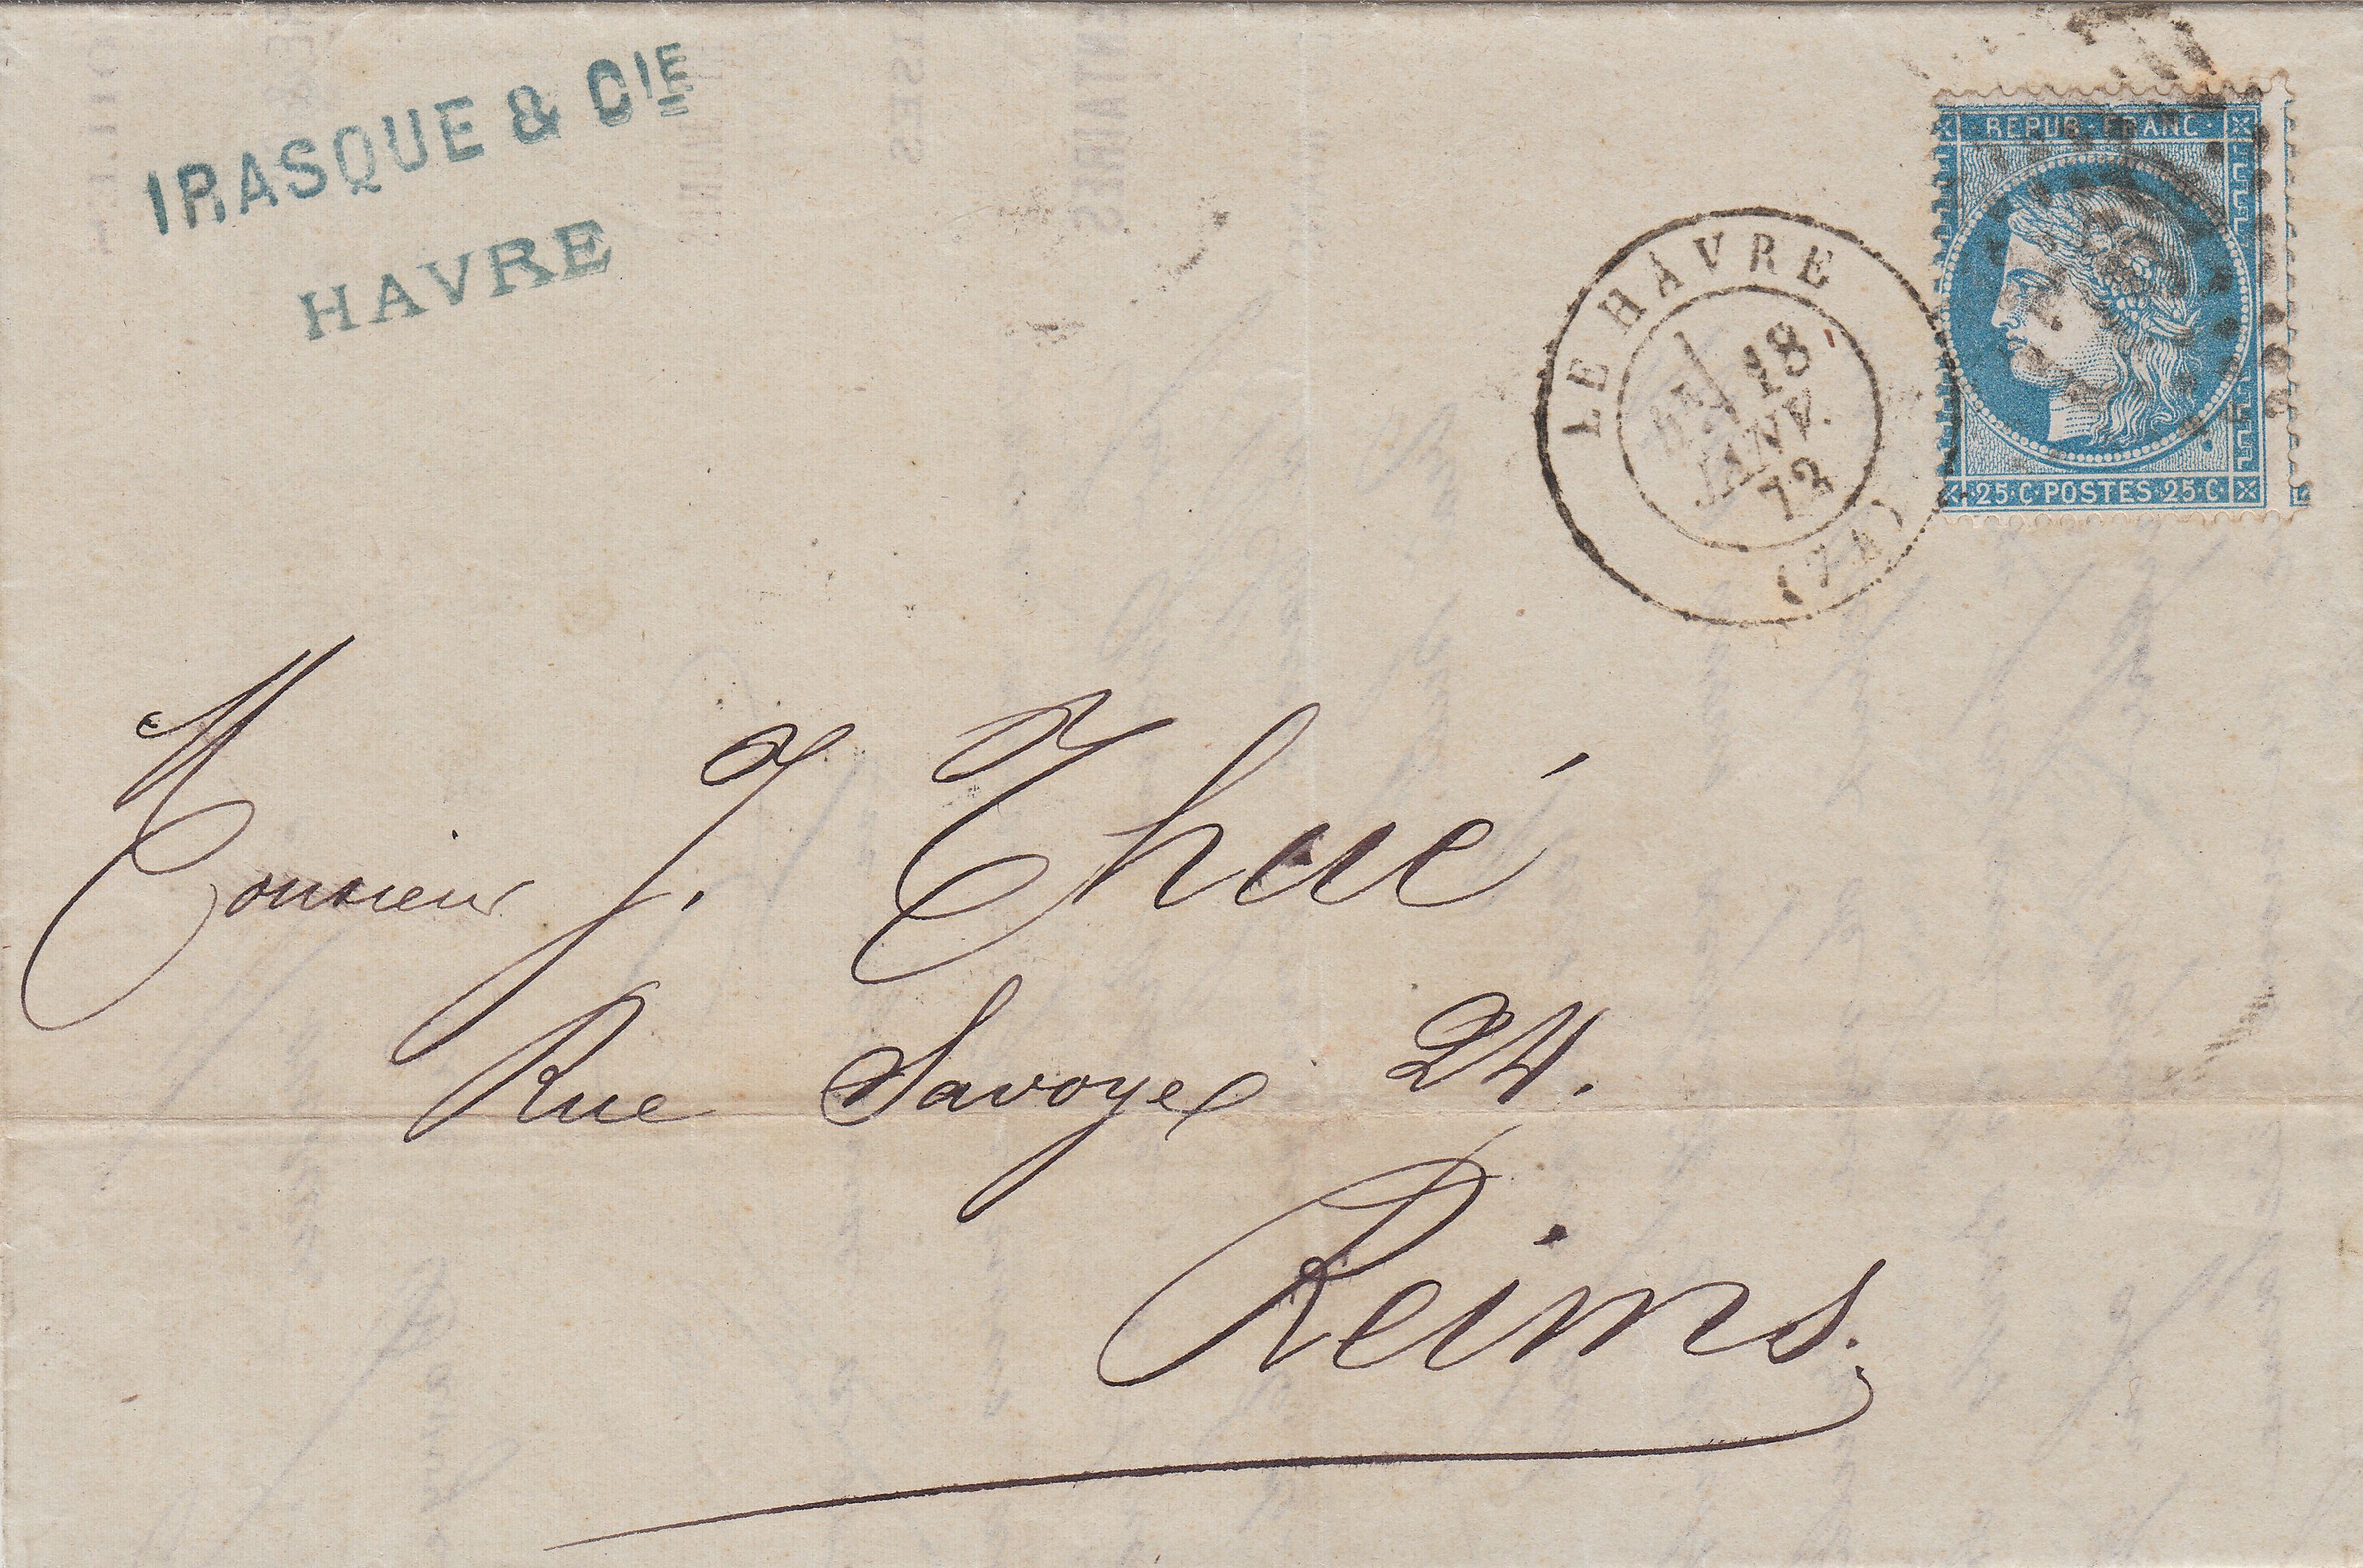 IRASQUE & CIE
HAVRE
REPUB · FRANC ·
25 · C · POSTES · 25 · C ·
LE HAVRE
18
JANV.
73
(74)
Monsieur J. Thué
Rue Savoye 24.
Reims.